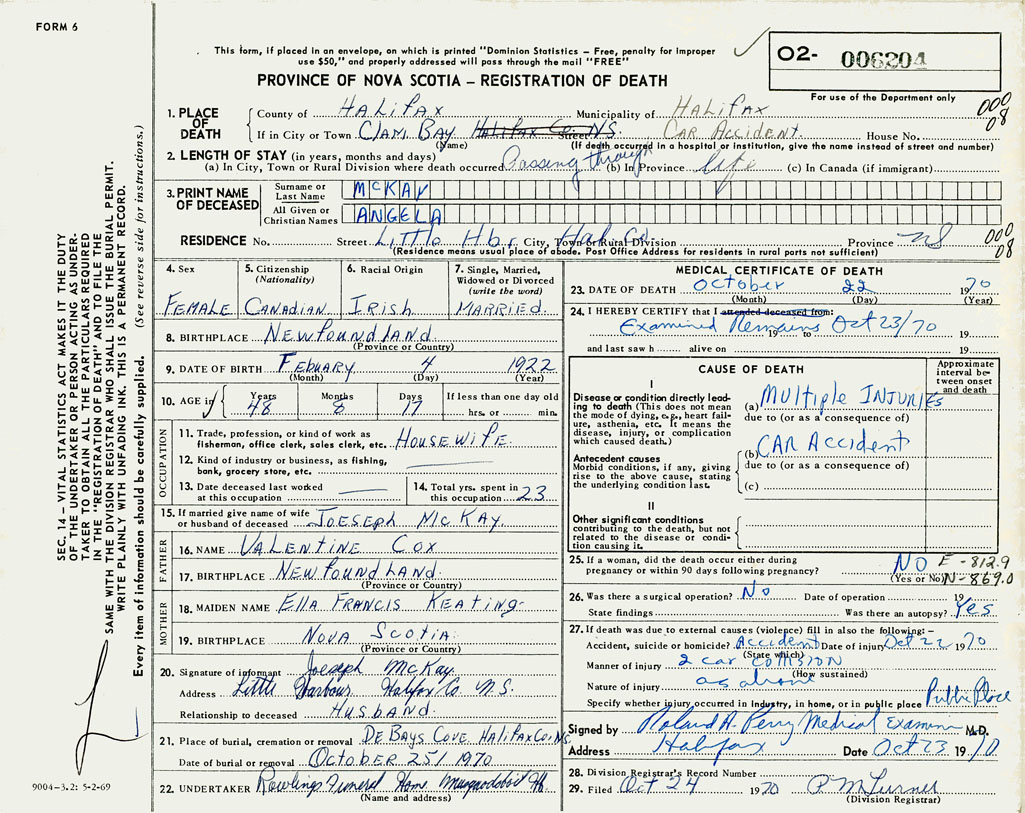 FORM 6
This form, if placed in an envelope, on which is printed "Dominion Statistics – Free, penalty for improper
use $50," and properly addressed will pass through the mail "FREE"
PROVINCE OF NOVA SCOTIA – REGISTRATION OF DEATH
O2- 006204
For use of the Department only
000
08
1. PLACE OF DEATH
County of HALIFAX Municipality of HALIFAX
If in City or Town CLAM BAY Halifax Co. NS. Street CAR ACCIDENT. House No.
(Name) (If death occurred in a hospital or institution, give the name instead of street and number)
2. LENGTH OF STAY (in years, months and days)
(a) In City, Town or Rural Division where death occurred Passing through (b) In Province life (c) In Canada (if immigrant)
3. PRINT NAME OF DECEASED
Surname or Last Name McKAY
All Given or Christian Names ANGELA
RESIDENCE No. Street Little Hbr City, Town or Rural Division Hal. Co. Province NS
000
08
(Residence means usual place of abode. Post Office Address for residents in rural parts not sufficient)
4. Sex
FEMALE
5. Citizenship
(Nationality)
CANADIAN
6. Racial Origin
IRISH
7. Single, Married,
Widowed or Divorced
(write the word)
MARRIED
8. BIRTHPLACE NEWFOUNDLAND
(Province or Country)
9. DATE OF BIRTH FEBUARY 4 1922
(Month) (Day) (Year)
10. AGE if Years 48 Months 8 Days 17 If less than one day old
hrs. or min.
OCCUPATION
11. Trade, profession, or kind of work as
fisherman, office clerk, sales clerk, etc. HOUSEWIFE.
12. Kind of industry or business, as fishing,
bank, grocery store, etc.
13. Date deceased last worked
at this occupation
14. Total yrs. spent in
this occupation 23
15. If married give name of wife
or husband of deceased JOESEPH McKAY.
FATHER
16. NAME VALENTINE COX
17. BIRTHPLACE NEWFOUNDLAND
(Province or Country)
MOTHER
18. MAIDEN NAME ELLA FRANCIS KEATING
19. BIRTHPLACE NOVA SCOTIA
(Province or Country)
20. Signature of informant Joeseph McKay
Address Little Harbour Halifax Co. N.S.
Relationship to deceased HUSBAND.
21. Place of burial, cremation or removal DE BAYS COVE HALIFAX CO. NS.
Date of burial or removal OCTOBER 25/ 1970
22. UNDERTAKER Rawlings Funeral Home Musquodoboit Hbr
(Name and address)
MEDICAL CERTIFICATE OF DEATH
23. DATE OF DEATH OCTOBER 22 1970
(Month) (Day) (Year)
24. I HEREBY CERTIFY that I attended deceased from:
Examined Remains Oct 23/70 19 to 19
and last saw h alive on 19
CAUSE OF DEATH
Approximate interval between onset and death
I
Disease or condition directly leading to death (This does not mean
the mode of dying, e.g., heart failure, asthenia, etc. It means the
disease, injury, or complication
which caused death.)
(a) MULTIPLE INJURIES
due to (or as a consequence of)
Antecedent causes
Morbid conditions, if any, giving
rise to the above cause, stating
the underlying condition last.
(b) CAR Accident
due to (or as a consequence of)
(c)
II
Other significant conditions
contributing to the death, but not
related to the disease or condition causing it.
25. If a woman, did the death occur either during
pregnancy or within 90 days following pregnancy? NO
(Yes or No)
E-812.9
N-869.0
26. Was there a surgical operation? No Date of operation 19
State findings Was there an autopsy? Yes
27. If death was due to external causes (violence) fill in also the following:–
Accident, suicide or homicide? Accident Date of injury Oct 22 1970
(State which)
Manner of injury 2 car COLLISION
(How sustained)
Nature of injury as above
Specify whether injury occurred in industry, in home, or in public place Public Place
Signed by Roland A. Perry Medical Examiner M.D.
Address Halifax Date Oct 23 1970
28. Division Registrar's Record Number
29. Filed Oct 24 1970 P M Turner
(Division Registrar)
SEC. 14 – VITAL STATISTICS ACT MAKES IT THE DUTY
OF THE UNDERTAKER OR PERSON ACTING AS UNDERTAKER TO OBTAIN ALL THE PARTICULARS REQUIRED
IN THE "REGISTRATION OF DEATH" AND TO FILE THE
SAME WITH THE DIVISION REGISTRAR WHO SHALL ISSUE THE BURIAL PERMIT.
WRITE PLAINLY WITH UNFADING INK. THIS IS A PERMANENT RECORD.
Every item of information should be carefully supplied. (See reverse side for instructions.)
9004-3.2: 5-2-69